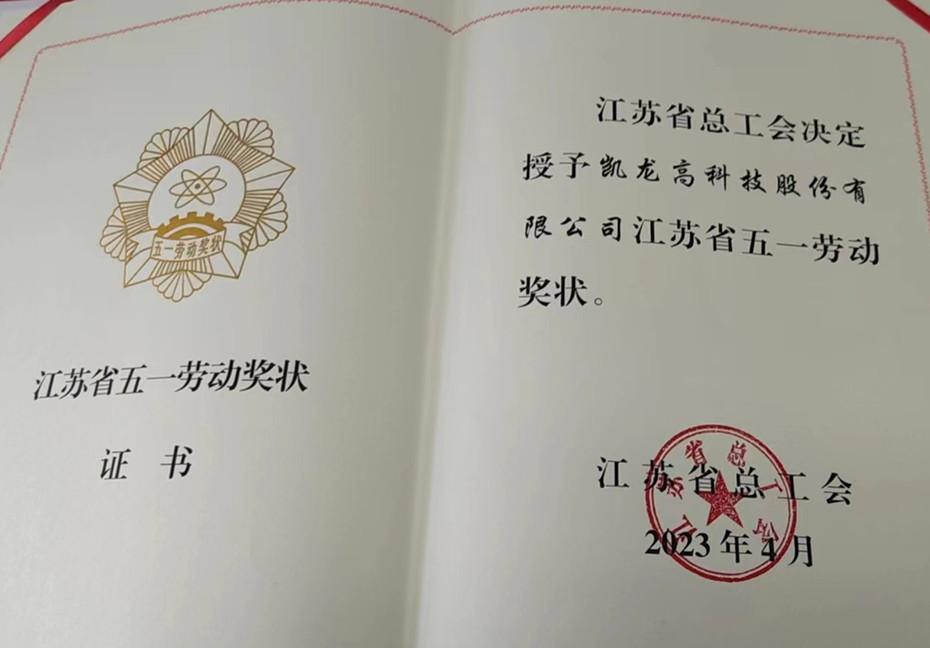 五一劳动奖状
江苏省五一劳动奖状
证书
江苏省总工会决定
授予凯龙高科技股份有
限公司江苏省五一劳动
奖状。
江苏省总工会
2023年4月
江苏省总工会